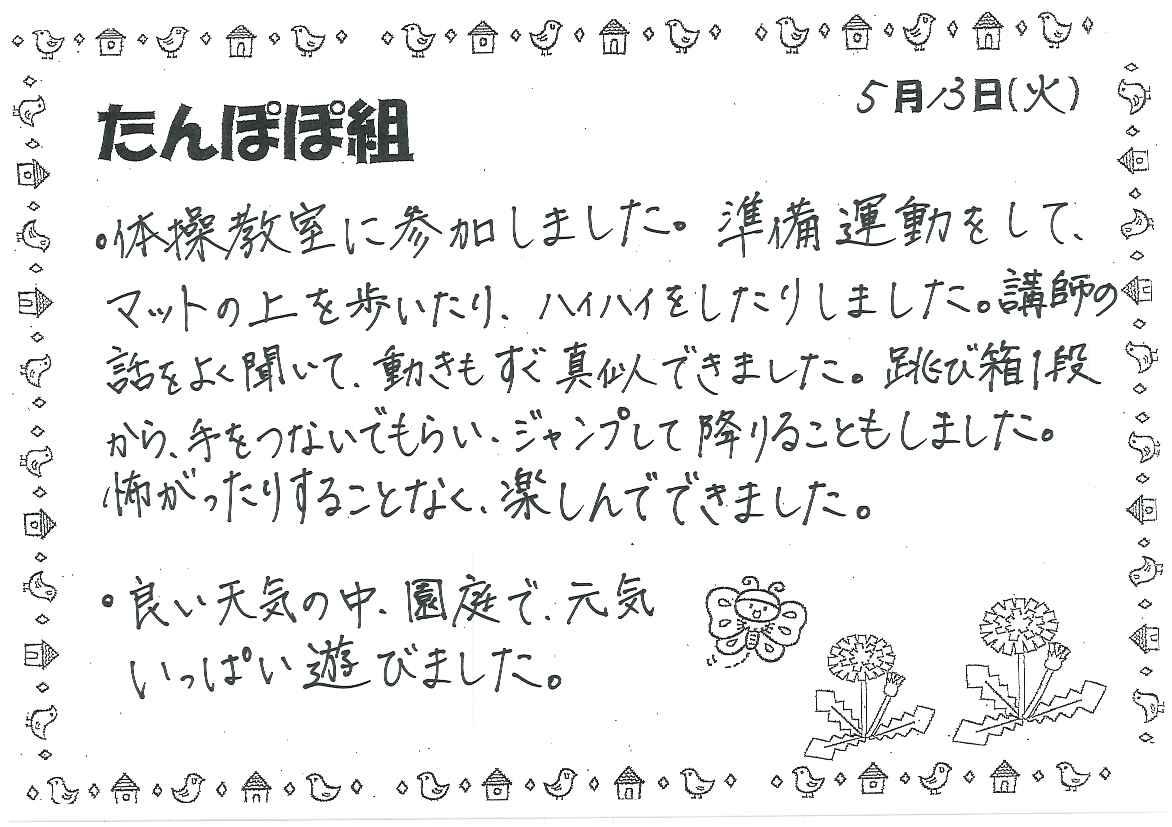 5月13日(火)
たんぽぽ組
・体操教室に参加しました。準備運動をして、
マットの上を歩いたり、ハイハイをしたりしました。講師の
話をよく聞いて、動きもすぐ真似できました。跳び箱1段
から、手をつないでもらい、ジャンプして降りることもしました。
怖がったりすることなく、楽しんでできました。
・良い天気の中、園庭で、元気
いっぱい遊びました。